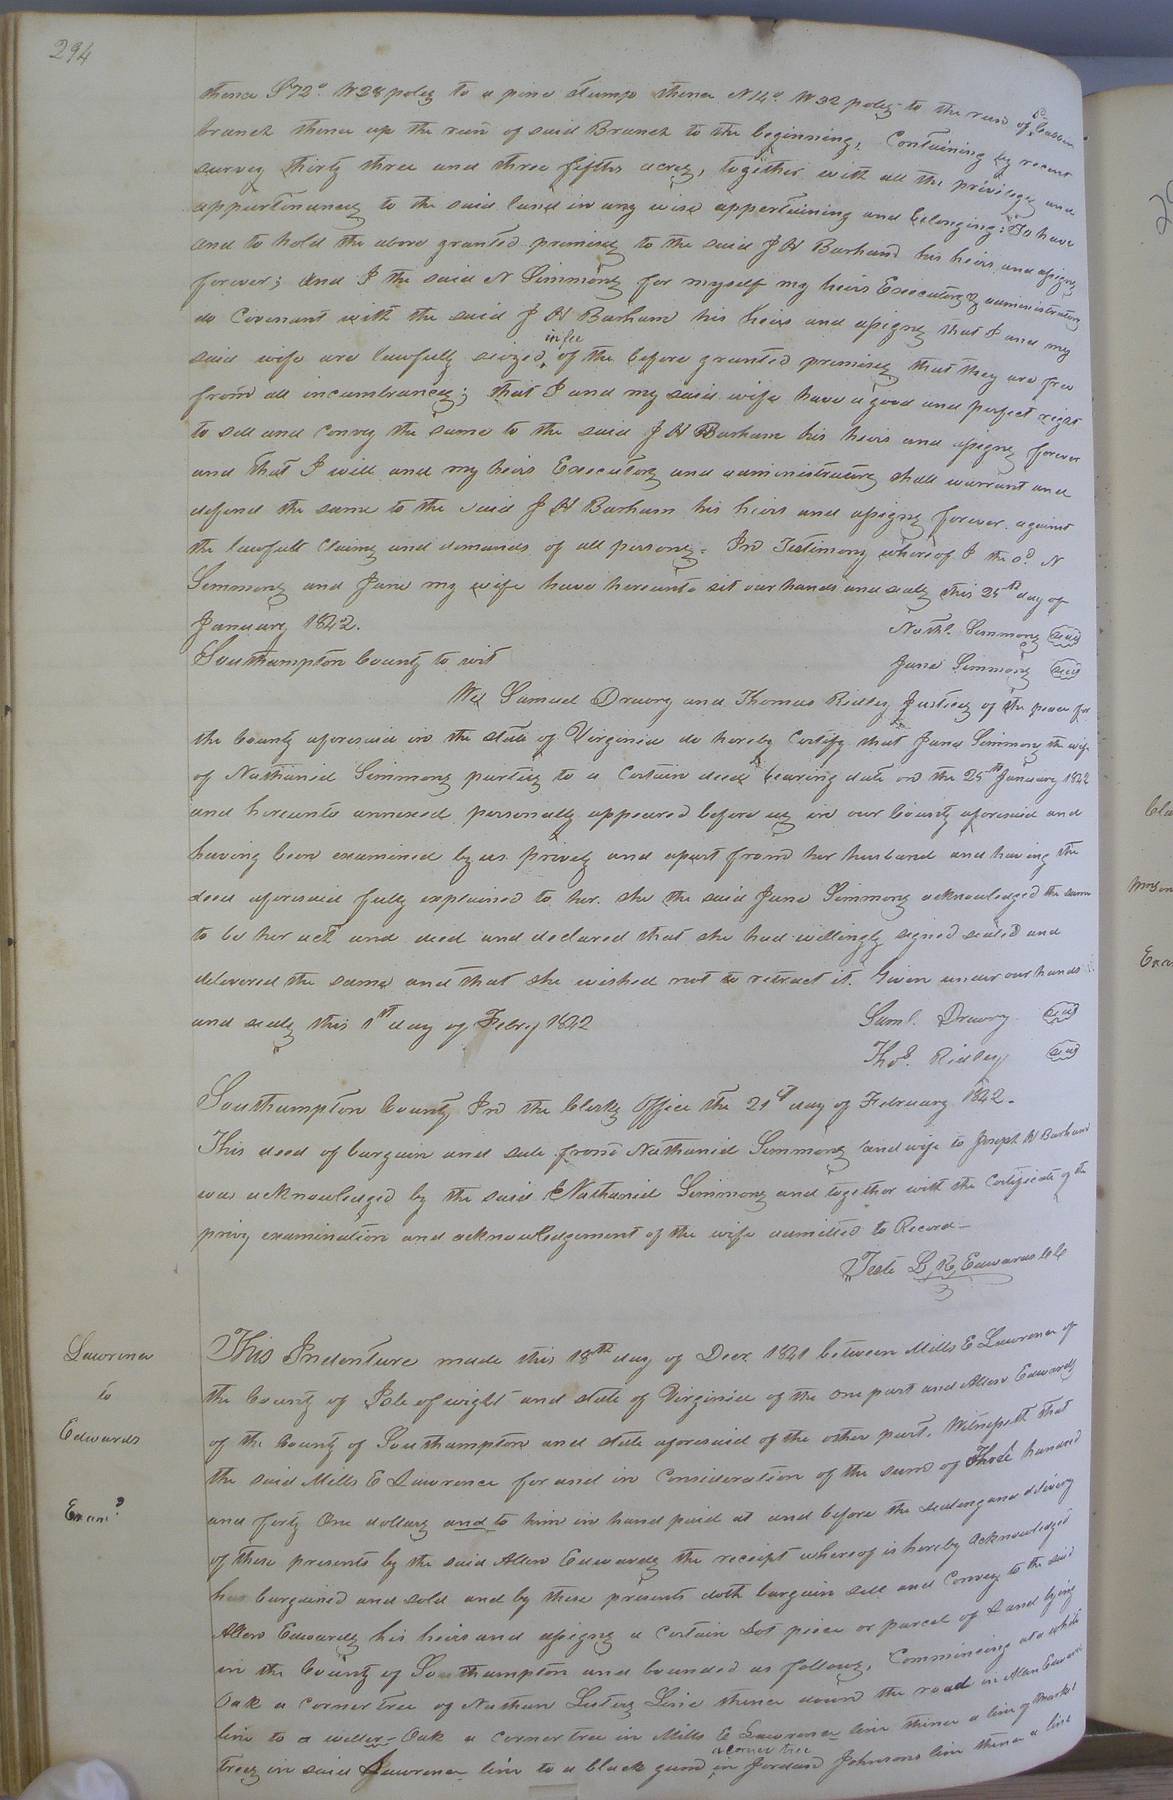 294
thence S72° W28 poles to a pine stump thence N14° W32 poles to the run of sd Cabbin
branch thence up the run of said Branch to the beginning, Containing by recent
survey thirty three and three fifths acres, together with all the privileges and
appurtenances to the said land in any wise appertaining and belonging: To have
and to hold the above granted premises to the said J H Barham his heirs and assigns
forever; And I the said N Simmons for myself my heirs Executors & administrators
do Covenant with the said J H Barham his heirs and assigns that I and my
said wife are lawfully seized, in fee of the before granted premises that they are free
from all incumbrances; that I and my said wife have a good and perfect right
to sell and Convey the same to the said J H Barham his heirs and assigns forever
and that I will and my heirs Executors and administrators shall warrant and
defend the same to the said J H Barham his heirs and assigns forever against
the lawfull Claims and demands of all persons. In Testimony whereof I the sd N
Simmons and Jane my wife have hereunto set our hands and seals this 25th day of
January 1842. Nathl. Simmons seal
Southampton County to wit Jane Simmons seal
We Samuel Drewry and Thomas Ridley Justices of the peace for
the County aforesaid in the state of Virginia do hereby Certify that Jane Simmons the wife
of Nathaniel Simmons parties to a Certain deed bearing date on the 25th January 1842
and hereunto annexed personally appeared before us in our County aforesaid and
having been examined by us privily and apart from her husband and having the
deed aforesaid fully explained to her she the said Jane Simmons acknowledged the same
to be her act and deed and declared that she had willingly signed sealed and
delivered the same and that she wished not to retract it. Given under our hands
and seals this 1st day of Feby 1842 Saml. Drewry seal
Thos. Ridley seal
Southampton County In the Clerks Office the 21st day of February 1842.
This deed of bargain and sale from Nathaniel Simmons and wife to Joseph H Barham
was acknowledged by the said Nathaniel Simmons and together with the Certificate of the
privy examination and acknowledgement of the wife admitted to Record—
Teste L, R, Edwards CC
Lawrence
to
Edwards
Examd
This Indenture made this 18th day of Decr. 1841 between Mills E Lawrence of
the County of Isle of wight and state of Virginia of the one part and Allen Edwards
of the County of Southampton and state aforesaid of the other part, Witnesseth that
the said Mills E Lawrence for and in Consideration of the sum of Three hundred
and forty One dollars and to him in hand paid at and before the sealing and delivery
of these presents by the said Allen Edwards the receipt whereof is hereby acknowledged
has bargained and sold and by these presents doth bargain sell and Convey to the said
Allen Edwards his heirs and assigns a Certain Lot piece or parcel of Land lying
in the County of Southampton and bounded as follows, Commencing at a white
Oak a Corner tree of Nathan Lesters Line thence down the road in Alan Edwards
line to a willow-Oak a corner tree in Mills E Lawrence line thence a line of Marked
trees in said Lawrence line to a black gum, a corner tree in Jordan Johnsons line thence a line